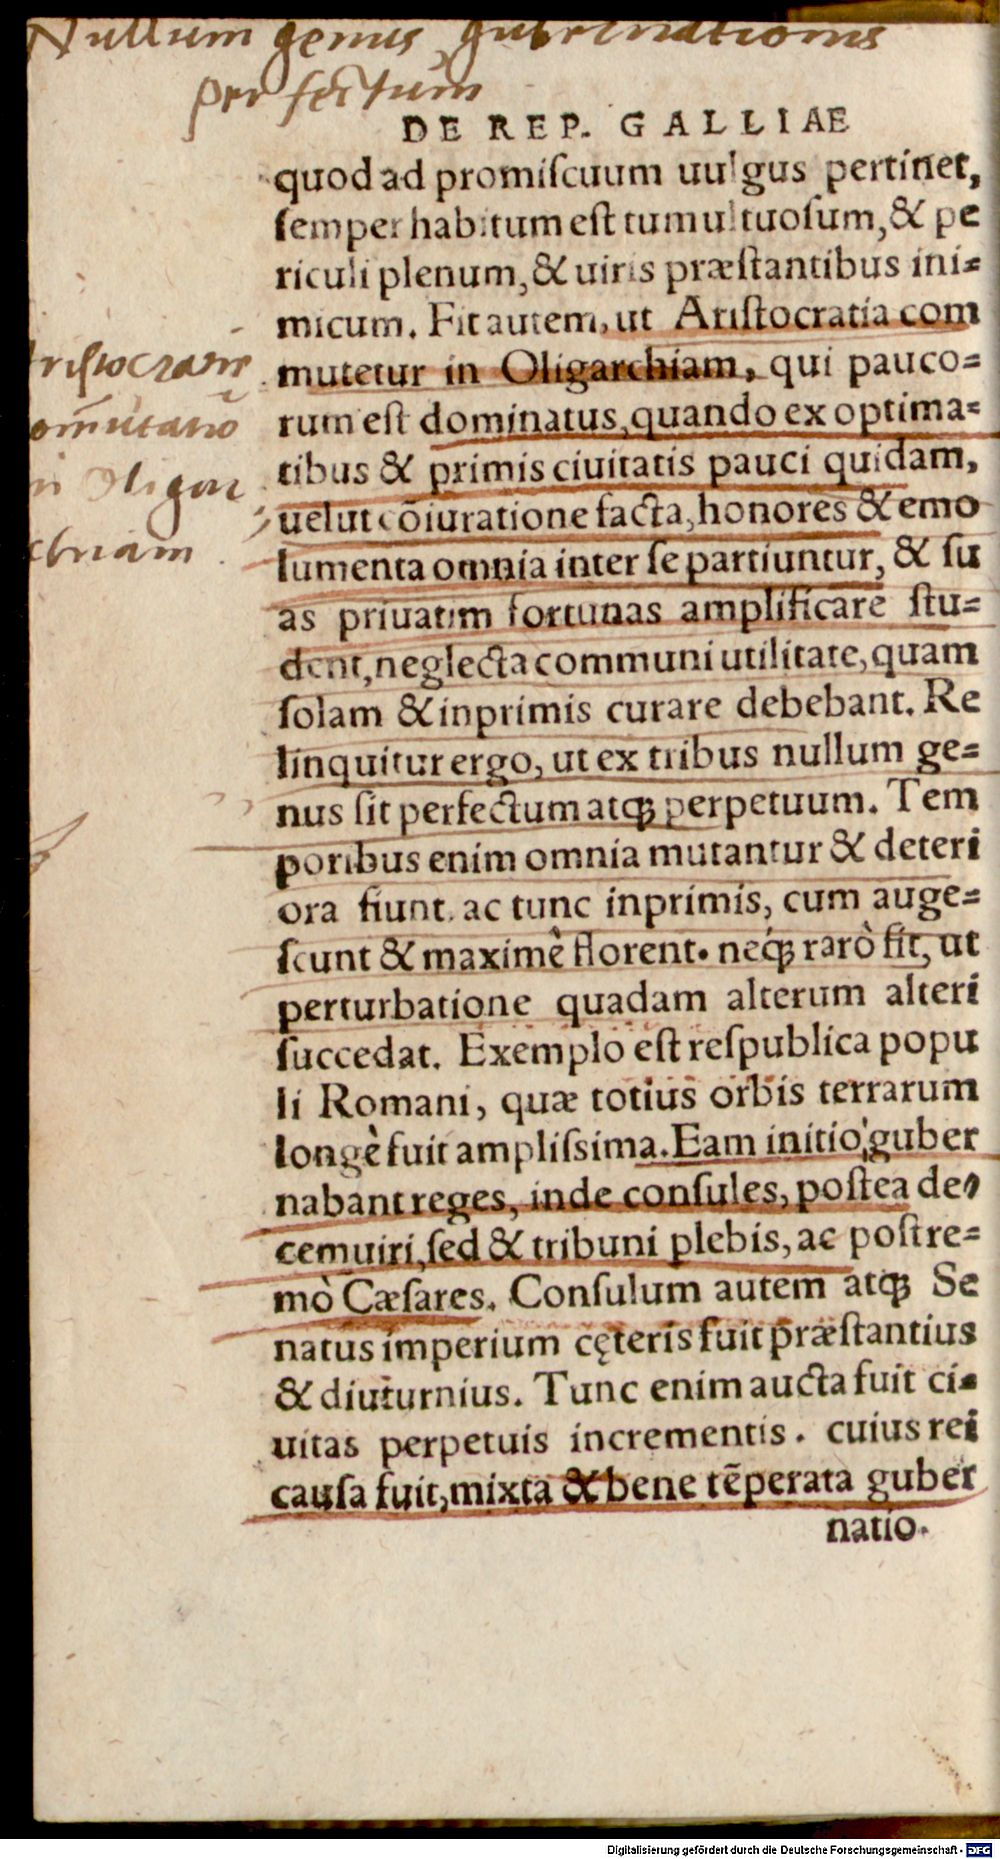 Nullum genus gubernationis
perfectum
DE REP. GALLIAE
quod ad promiſcuum uulgus pertinet,
ſemper habitum eſt tumultuoſum, & pe
riculi plenum, & uiris præſtantibus ini=
micum. Fit autem, ut Ariſtocratia com
mutetur in Oligarchiam, qui pauco=
rum eſt dominatus, quando ex optima=
tibus & primis ciuitatis pauci quidam,
uelut cōiuratione facta, honores & emo
lumenta omnia inter ſe partiuntur, & ſu
as priuatim fortunas amplificare ſtu=
dent, neglecta communi utilitate, quam
ſolam & inprimis curare debebant. Re
linquitur ergo, ut ex tribus nullum ge=
nus ſit perfectum atq; perpetuum. Tem
poribus enim omnia mutantur & deteri
ora fiunt. ac tunc inprimis, cum auge=
ſcunt & maximè florent. neq; rarò fit, ut
perturbatione quadam alterum alteri
ſuccedat. Exemplo eſt reſpublica popu
li Romani, quæ totius orbis terrarum
longè fuit ampliſsima. Eam initio guber
nabant reges, inde conſules, poſtea de=
cemuiri, ſed & tribuni plebis, ac poſtre=
mò Cæſares. Conſulum autem atq; Se
natus imperium cęteris fuit præſtantius
& diuturnius. Tunc enim aucta fuit ci=
uitas perpetuis incrementis. cuius rei
cauſa fuit, mixta & bene tēperata guber
natio.
ristocratiæ
omutatio
in Oligar
chiam
Digitalisierung gefördert durch die Deutsche Forschungsgemeinschaft - DFG